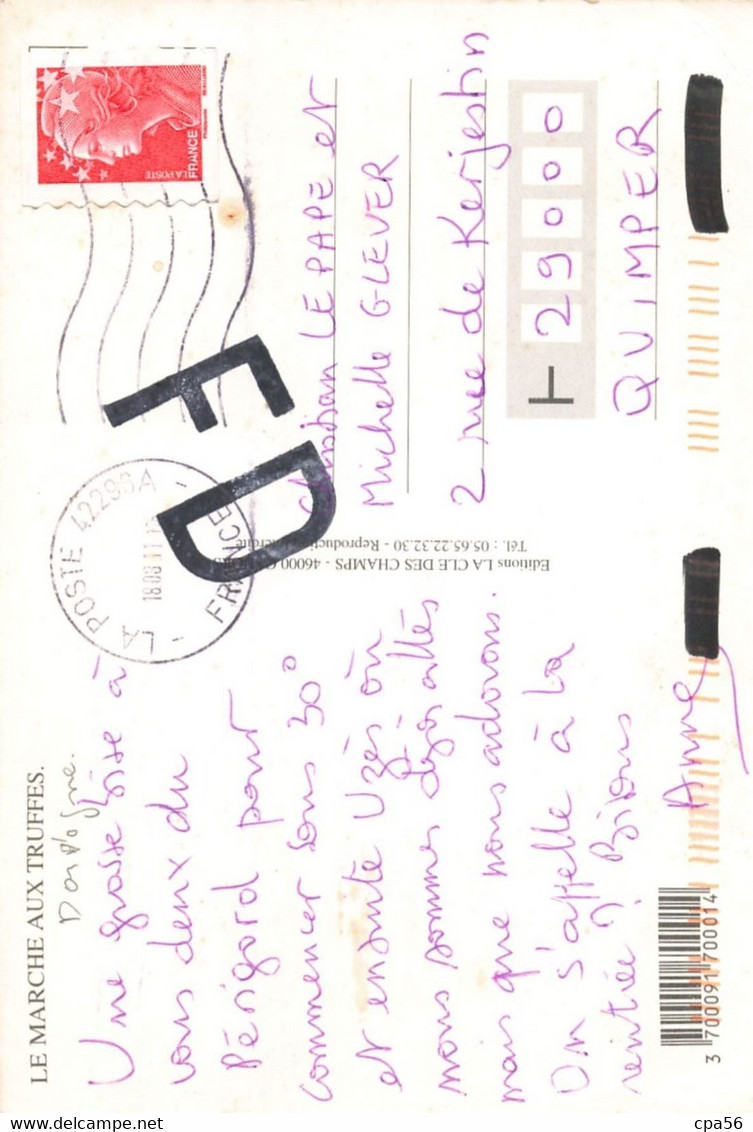 LE MARCHE AUX TRUFFES.
Dordogne.
Une grosse bise à
vous deux du
Périgord pour
commencer sous 30°
et ensuite Uzès où
nous sommes déjà allés
mais que nous adorons.
On s'appelle à la
rentrée ? Bisous
Anne
3 700091 700014
Editions LA CLE DES CHAMPS - 46000
Tél. : 05.65.22.32.30 - Reproduction interdite
LA POSTE 42296A
18.08.11
FRANCE
FD
LA POSTE
FRANCE
Christian LE PAPE et
Michelle GLEVER
2 rue de Kerjestin
29000
QUIMPER
cpa56